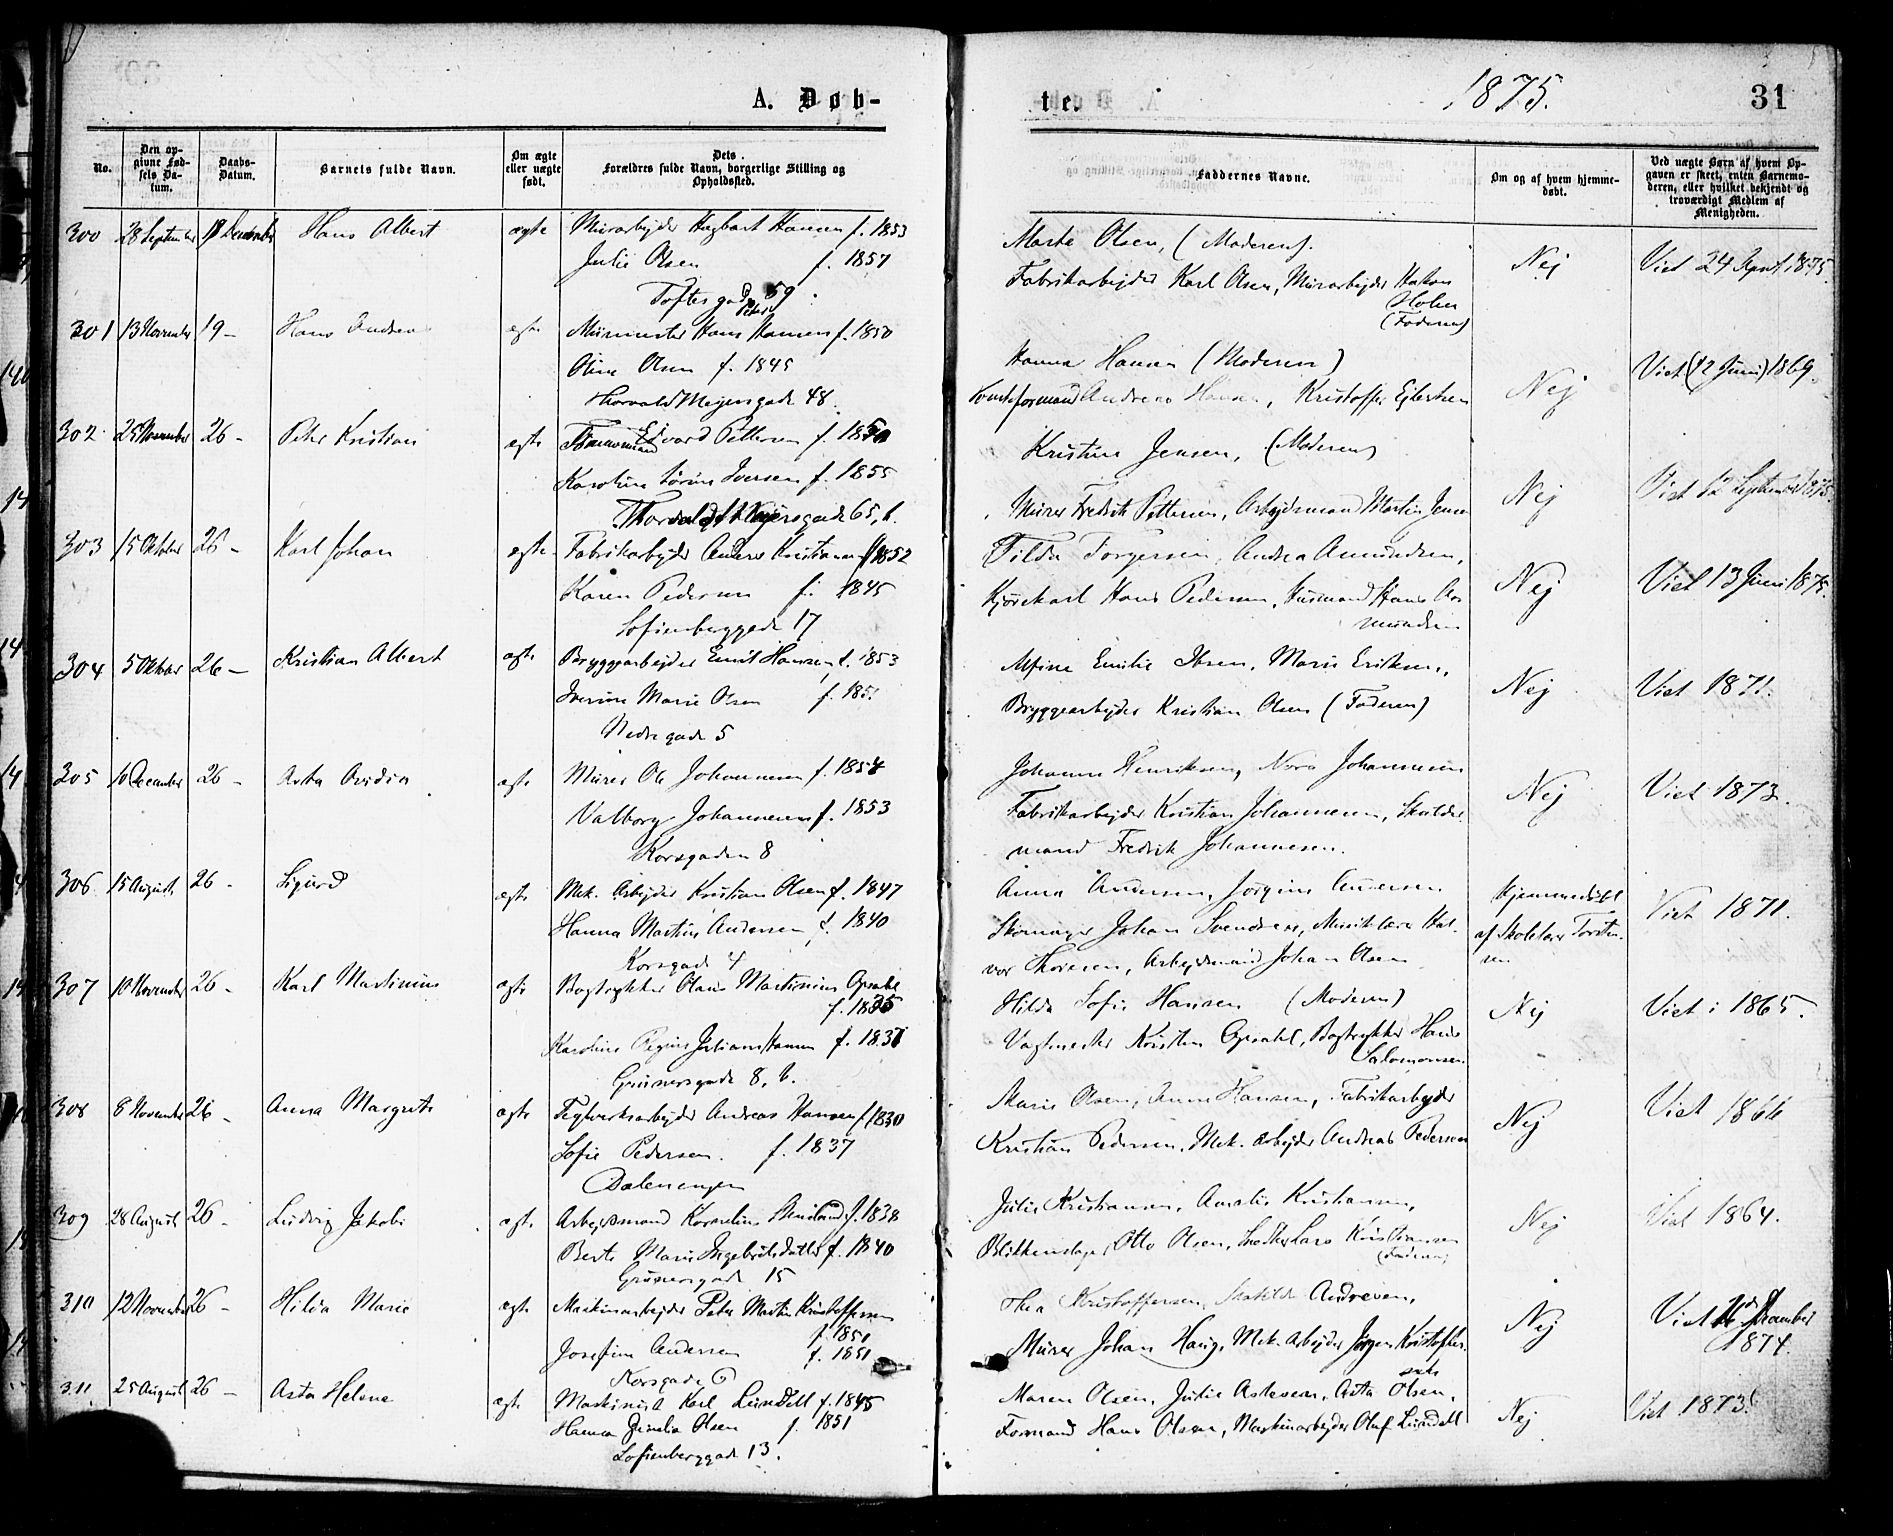 A. Døb-
te.
1875.
31
No.
Den op-
givne Fød-
sels Da-
tum.
Daabs-
Datum.
Barnets fulde Navn.
Om ægte
eller uægte
født.
Dets
Forældres fulde Navn, borgerlige Stilling og
Opholdssted.
Faddernes Navne.
Om og af hvem hjemme-
døbt.
Ved uægte Børn af hvem Op-
gaven er skeet, enten Barnemo-
deren, eller hvilket bekjendt og
troværdigt Medlem af
Menigheden.
300 28 September December Hans Albert ægte Murarbejder Hagbart Hansen f. 1853
Julie Olsen f. 1857
Toftesgade 59
Marte Olsen, (Moderen).
Fabrikarbejder Karl Olsen, Murarbejder Hakon
Holm
(Faderen)
Nej
Viet 24 Sept. 1875
301 13 November 19 - Hans Andreas ægte Murmester Hans Peter Hansen f. 1850
Oline Olsen f. 1845
Thorvald Meyersgade 48
Hanna Hansen (Moderen)
formand Andreas Hansen, Kristoffer Eilertsen
Nej
Viet (12 Juni) 1869
302 25 November 26 - Peter Kristian ægte Edvard Pettersen f. 1850
Karoline Sørine Iversen f. 1855
Thorvald Meyersgade 65, b.
Kristine Jensen, (Moderen)
Murer Fredrik Pettersen, Arbejdsmand Martin Jensen
Nej
Viet 12 September 1875
303 15 Oktober 26 - Karl Johan ægte Fabrikarbejder Anders Kristiansen f. 1852
Karen Pedersen f. 1845
Sofienberggade 17
Tilda Torgersen, Andrea Amundsen,
Kjørekarl Hans Pedersen, Husmand Hans Aa-
mundsen
Nej
Viet 13 Juni 1875.
304 5 Oktober 26 - Kristian Albert ægte Bryggearbejder Emil Hansen f. 1853
Iverine Marie Olsen f. 1851
Nedregade 5
Emilie Ibsen, Marie Eriksen,
Bryggearbejder Kristian Olsen (Faderen)
Nej
Viet 1871.
305 10 December 26 - Asta Ovidia ægte Murer Ole Johannesen f. 1854
Valborg Johannesen f. 1853
Korsgaden 8
Johanne Henriksen, Nora Johannesen
Fabrikarbejder Kristian Johannesen,
mand Fredrik Johannesen.
Nej
Viet 1873.
306 15 August 26 - Sigurd ægte Mek. Arbejder Kristian Olsen f. 1847
Hanna Martine Andersen f. 1840
Korsgade 4
Anna Andersen, Jørgine Andersen
Skomager Johan Svendsen, Musiklærer Hal-
vor Thoresen, Arbejdsmand Johan Olsen
Hjemmedøbt
af Skolelærer Torsten-
sen
Viet 1871.
307 10 November 26 - Karl Martinius ægte Bogtrykker Olaus Martinius Opsahl
f. 1835
Karoline Regine Juliane Hansen f. 1837
Grünersgade 8, b.
Hilda Sofie Hansen (Moderen)
Vagtmester Kristian Opsahl, Bogtrykker Hans
Salomonsen
Nej
Viet i 1865.
308 8 November 26 - Anna Margrete ægte Teglverksarbejder Andreas Hansen f. 1830
Sofie Pedersen. f. 1837
Dælenengen
Marie Olsen, Anne Hansen, Fabrikarbejder
Kristian Pedersen, Mek. Arbejder Andreas Pedersen
Nej
Viet 1866
309 28 August 26 - Ludvig Jakob ægte Arbejdsmand Kornelius f. 1838
Berte Marie Ingebrigtsdatter f. 1840
Grünersgade 15
Julie Kristiansen, Amalie Kristiansen,
Blikkenslager Otto Olsen, Snedker Lars Kristiansen
(Faderen)
Nej
Viet 1864.
310 12 November 26 - Hilda Marie ægte Maskinarbejder Peter Martin Kristoffersen
f. 1851
Josefine Andersen f. 1851
Korsgade 6
Thea Kristoffersen, Matilde Andresen,
Murer Johan Haug, Mek. Arbejder Jørgen Kristoffer-
sen
Nej
Viet December
1874.
311 25 August 26 - Asta Helene ægte Maskinist Karl Lundell f. 1845
Hanna Olsen f. 1851
Sofienberggade 13.
Maren Olsen, Julie Astesen, Asta Olsen,
Formand Hans Olsen, Maskinarbejder Oluf Lundell
Nej
Viet 1873.